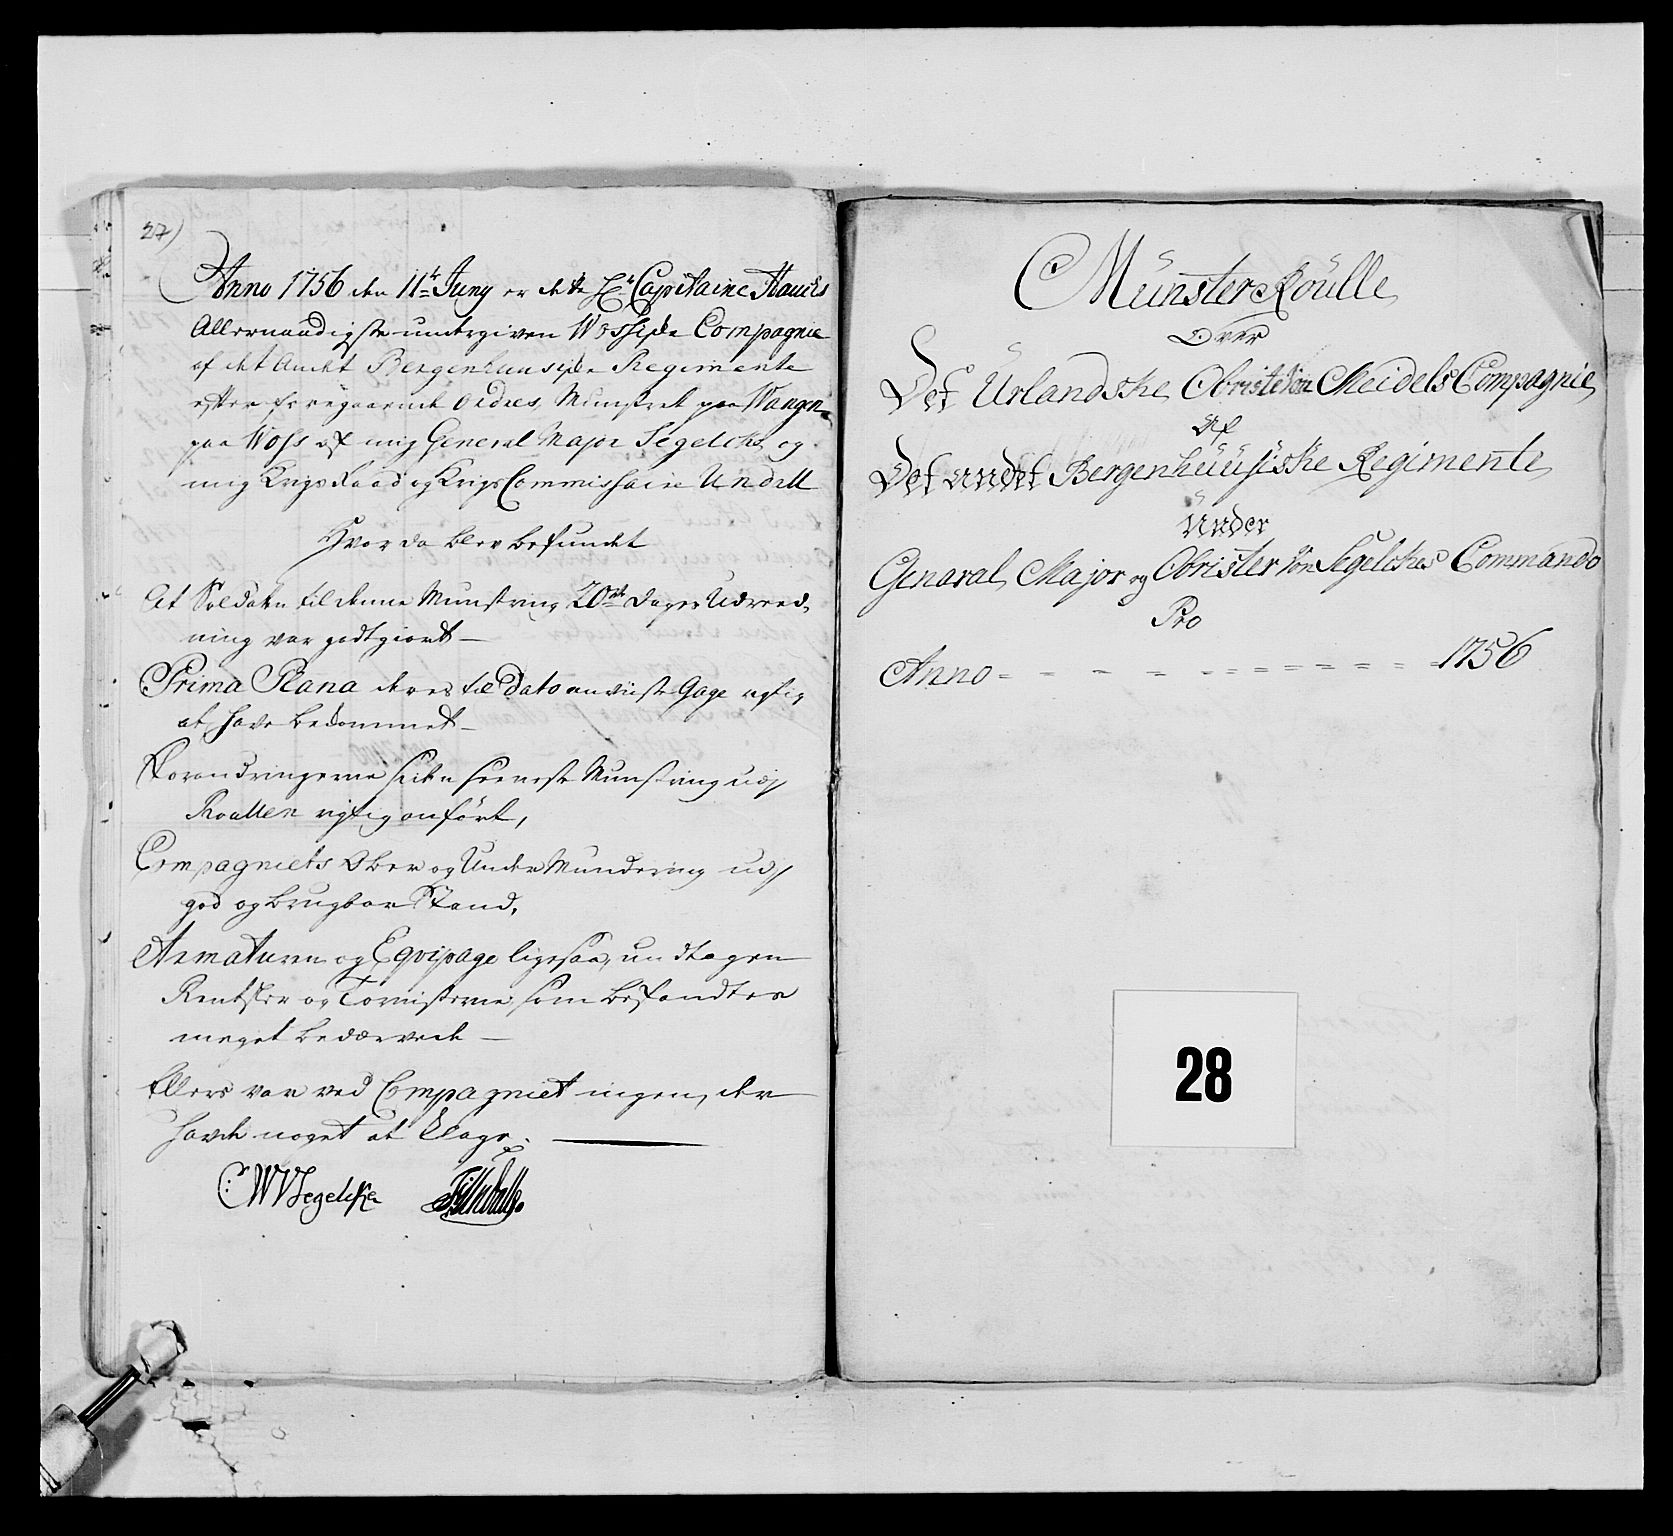 27)
Anno 1756 den 11te Juny er dette Hr Capitaine Haucks
Allernaadigste untergiven Wossiske Compagnie
af det Andet Bergenhuusiske Regimente
efter foregaaende Ordres, Munstret paa Wangen
paa Woss af mig General Major Segelcke og
mig Krigs Raad og Krigs Commissaire Undall
Hvor da blev befundet
At Soldaten til denne Munstring 20de Dages Udreed-
ning var godtgiort —
Prima Plana deres til Dato anviiste Gage rigtig
at have bekommet —
Forandringerne siden seeneste Munstring udj
Roullen rigtig anfört,
Compagniets Ober og Under Mundering udj
god og brugbar Stand,
Armaturen og Eqvipage ligesaa, undtagen
Rentsler og Tornisterne som befandtes
meget bedærvede —
Ellers var ved Compagniet ingen, der
havde noget at klage.
CWVSegelcke
Münster Roülle
Over
Det Ürlandske Obriste Von Meidels Compagnie
Af
Det andet Bergenhüüsiske Regimente
Ünder
General Major og Obrister Von Segelckes Commando
Pro
Anno - - - - - - - - - - - 1756
28